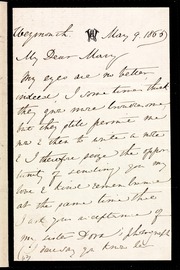 Weymouth May 9. 1865
My Dear Mary,
My eyes are no better
indeed I some times think
they grow more troublesome,
but they still permit me
now & then to write a note
& I therefore seize the oppor
tunity of sending you my
love & kind remembrances
at the same time that
I ask your acceptance of
my sister Dora's photograph
you know her